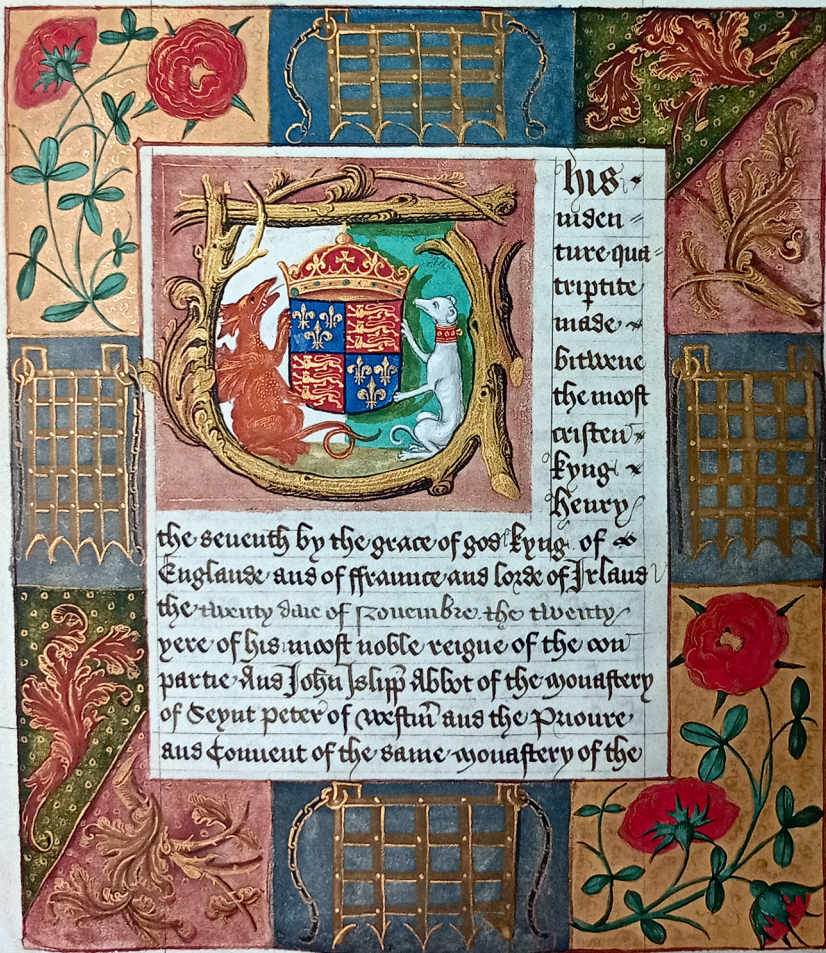 This
inden =
ture qua =
triptite
made
bitwene
the moost
cristen
kyng
Henry
the seventh by the grace of god kyng of
Englande and of ffraunce and lorde of Irland
the twenty daie of Novembre the twenty
yere of his moost noble reigne of the oon
partie And John Islipp Abbot of the monastery
of Seynt Peter of Westm and the Prioure
and Convent of the same monastery of the